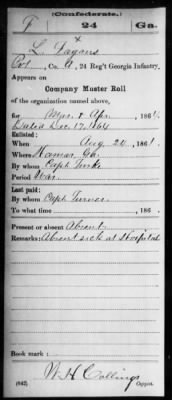 (Confederate.)
F 24 Ga.
L. Fagans
Pvt, Co. , 24 Reg't Georgia Infantry.
Appears on
Company Muster Roll
of the organization named above,
for Mar. & Apr, 1864.
Dated Dec. 17, 1864
Enlisted:
When Aug. 24, 1861.
Where , Ga.
By whom Capt.
Period War.
Last paid:
By whom Capt. Turner
To what time , 186 .
Present or absent Absent
Remarks: Absent sick at Hospital
Book mark:
W H Collings
(642) Copyist.